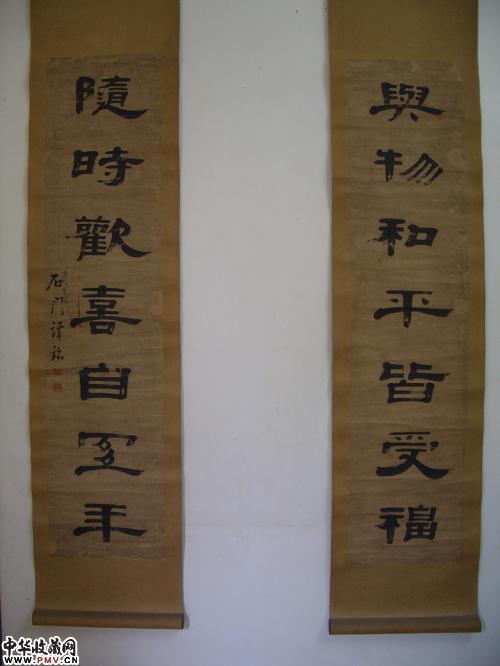 與物和平皆受福
隨時歡喜自年
石門
中华收藏网
www.PMV.CN